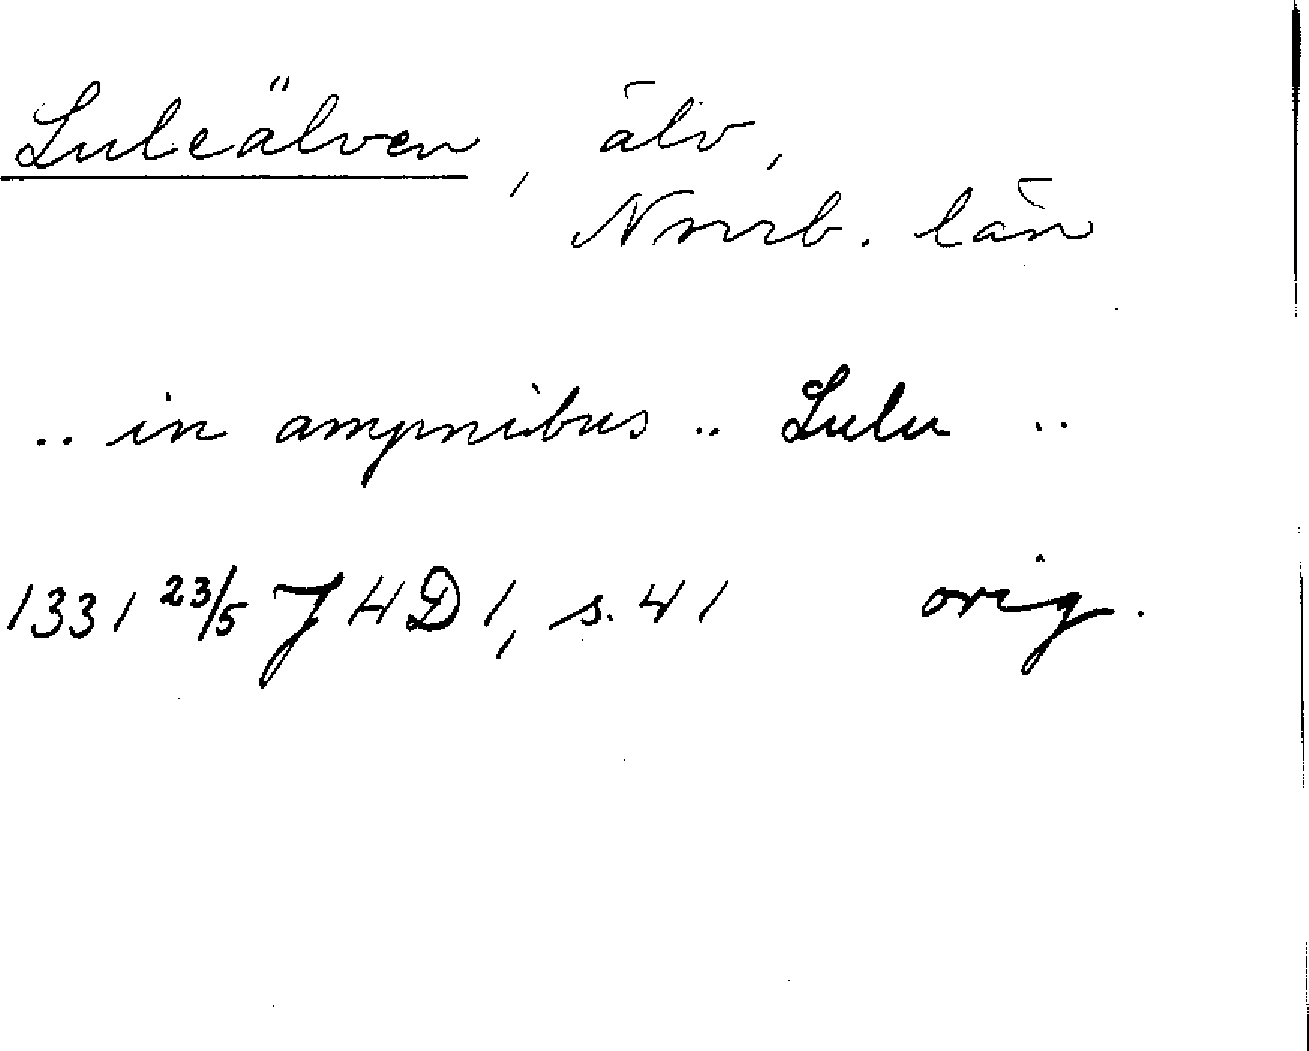 Luleälven, älv,
Norrb. län
.. in ampnibus .. Lulu ..
1331 23/5 J H D 1, s. 41 orig.